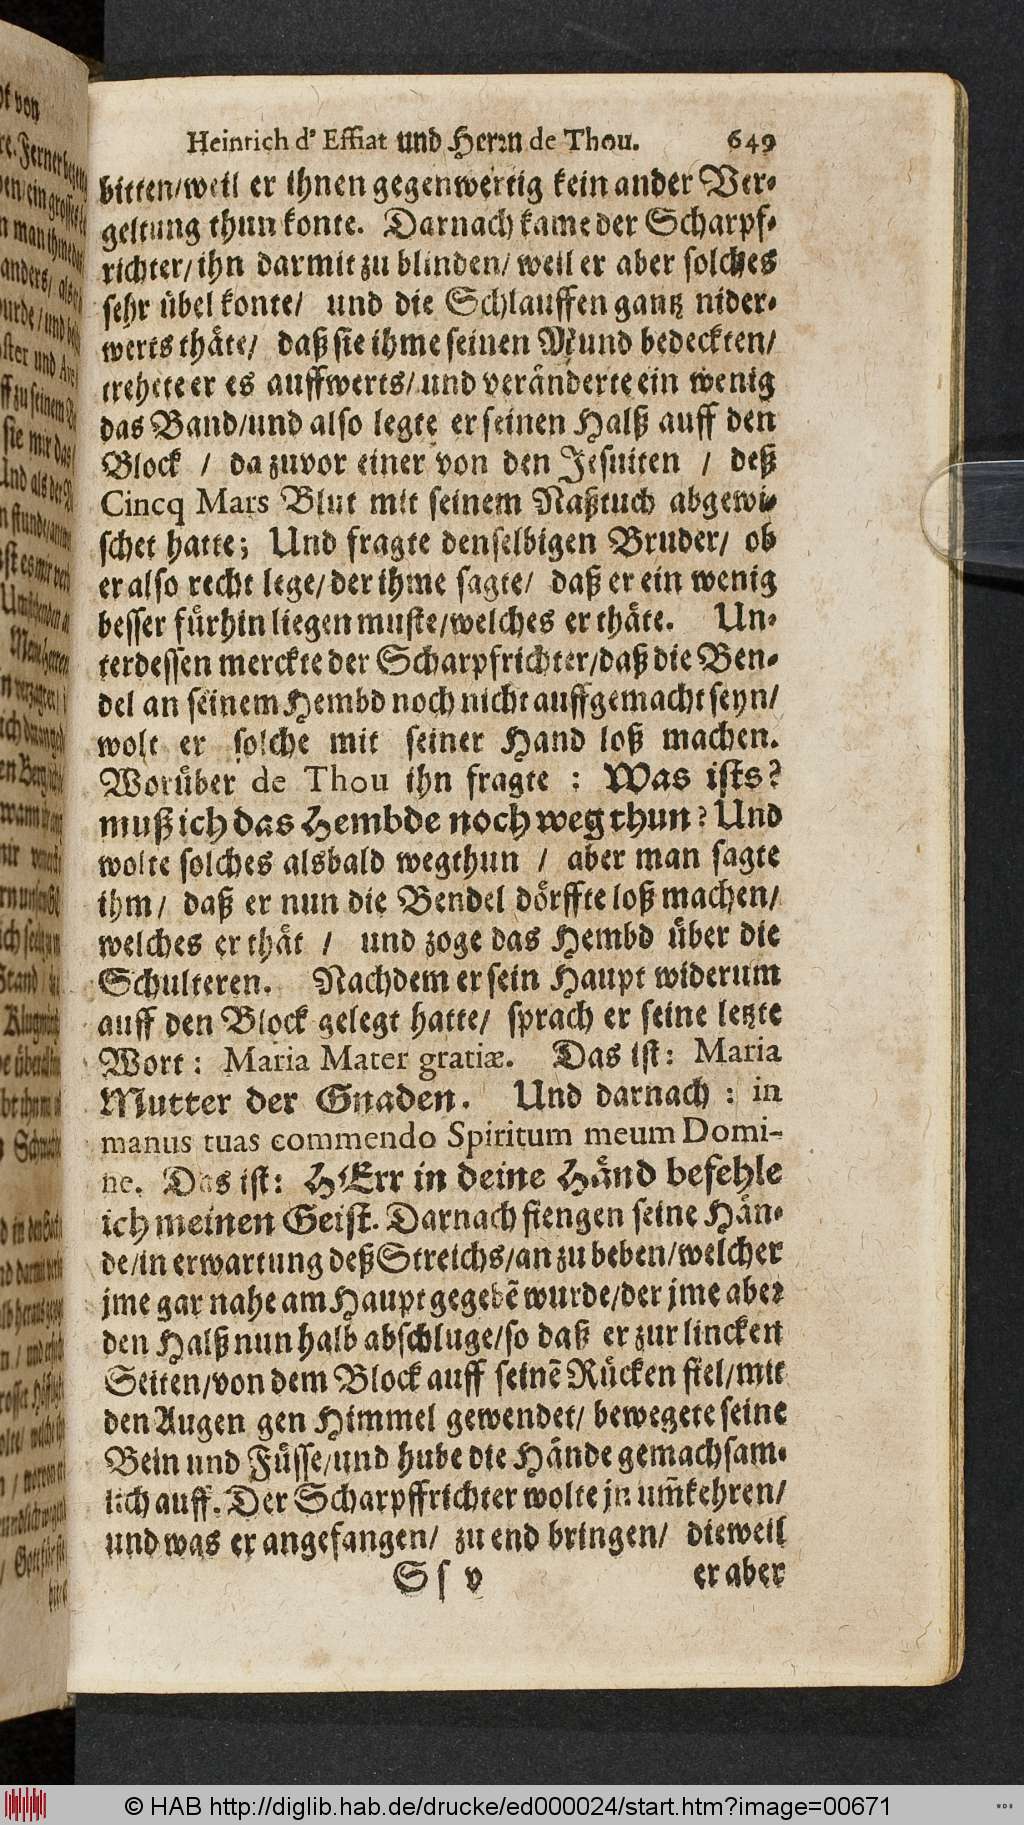 Heinrich d' Effiat und Herꝛn de Thou. 649
bitten/weil er ihnen gegenwertig kein ander Ver-
geltung thun konte. Darnach kame der Scharpf-
richter/ihn darmit zu blinden/ weil er aber solches
sehr übel konte/ und die Schlauffen gantz nider-
werts thäte/ daß sie ihme seinen Mund bedeckten/
trehete er es auffwerts/und veränderte ein wenig
das Band/und also legte er seinen Halß auff den
Block / da zuvor einer von den Jesuiten / deß
Cincq Mars Blut mit seinem Naßtuch abgewi-
schet hatte; Und fragte denselbigen Bruder/ ob
er also recht lege/der ihme sagte/ daß er ein wenig
besser fürhin liegen muste/welches er thäte. Un-
terdessen merckte der Scharpfrichter/daß die Ben-
del an seinem Hembd noch nicht auffgemacht seyn/
wolt er solche mit seiner Hand loß machen.
Worüber de Thou ihn fragte : Was ists?
muß ich das Hembde noch weg thun? Und
wolte solches alsbald wegthun / aber man sagte
ihm/ daß er nun die Bendel dörffte loß machen/
welches er thät / und zoge das Hembd über die
Schulteren. Nachdem er sein Haupt widerum
auff den Block gelegt hatte/ sprach er seine letzte
Wort: Maria Mater gratiæ. Das ist: Maria
Mutter der Gnaden. Und darnach : in
manus tuas commendo Spiritum meum Domi-
ne. Das ist: HErr in deine Händ befehle
ich meinen Geist. Darnach fiengen seine Hän-
de/in erwartung deß Streichs/an zu beben/welcher
jme gar nahe am Haupt gegebē wurde/der jme abeꝛ
den Halß nun halb abschluge/so daß er zur lincken
Seiten/von dem Block auff seinē Rücken fiel/mit
den Augen gen Himmel gewendet/ bewegete seine
Bein und Füsse/und hube die Hände gemachsam-
lich auff. Der Scharpffrichter wolte jn um̄kehren/
und was er angefangen/ zu end bringen/ dieweil
S s v er aber
© HAB http://diglib.hab.de/drucke/ed000024/start.htm?image=00671